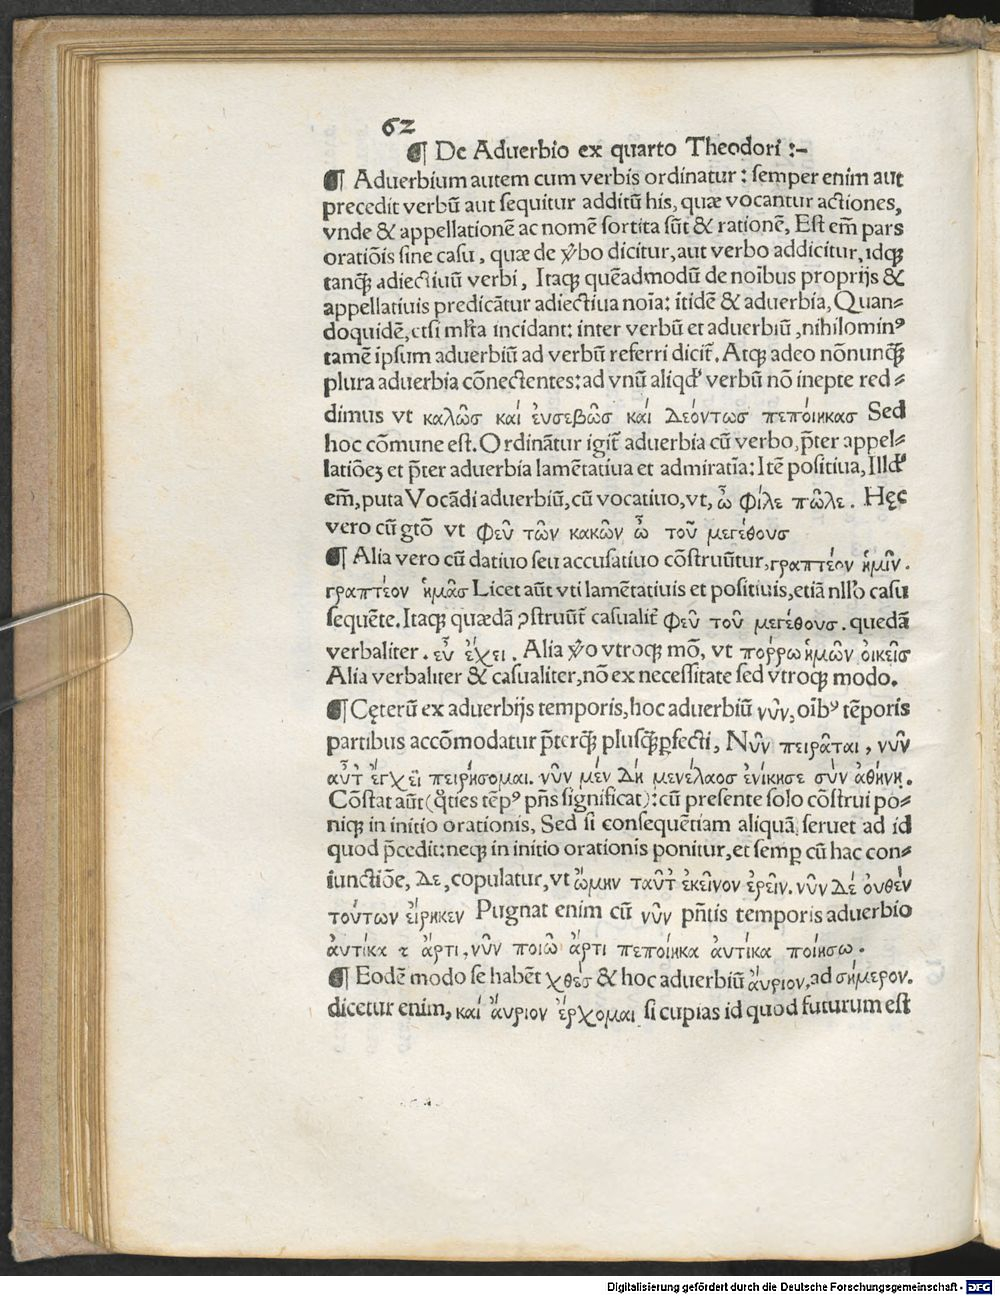 62
¶ De Aduerbio ex quarto Theodori :-
¶ Aduerbium autem cum verbis ordinatur : semper enim aut
precedit verbũ aut sequitur additũ his, quæ vocantur actiones,
vnde & appellationẽ ac nomẽ sortita sũt & rationẽ, Est em̃ pars
oratiõis sine casu, quæ de v̓bo dicitur, aut verbo addicitur, idqꝫ
tanqꝫ̃ adiectiuũ verbi, Itaqꝫ quẽadmodũ de noĩbus proprijs &
appellatiuis predicãtur adiectiua noĩa: itidẽ & aduerbia, Quan⸗
doquidẽ, etsi ml̃ta incidant: inter verbũ et aduerbiũ, nihilominꝰ
tamẽ ipsum aduerbiũ ad verbũ referri dicit̃. Atqꝫ adeo nõnunqꝫ̃
plura aduerbia cõnectentes: ad vnũ aliqd̓ verbũ nõ inepte red⸗
dimus vt καλῶσ καί ἐυσεβῶσ καί Δεόντωσ πεπόιηκασ Sed
hoc cõmune est. Ordinãtur igit̃ aduerbia cũ verbo, p̃ter appel⸗
latiõeꝫ et p̃ter aduerbia lamẽtatiua et admiratĩa: Itẽ positiua, Illd̓
em̃, puta Vocãdi aduerbiũ, cũ vocatiuo, vt, ὦ φίλε πῶλε. Hęc
vero cũ gtõ vt φεῦ τῶν κακῶν ὦ τοῦ μεγέθουσ
¶ Alia vero cũ datiuo seu accusatiuo cõstruũtur, γραπτέον ἡμῖν.
γραπτέον ἡμᾶσ Licet aũt vti lamẽtatiuis et positiuis, etiã nll̓o casu
sequẽte. Itaqꝫ quædã ꝯstruũt̃ casualit̃ φεῦ τοῦ μεγέθουσ. quedã
verbaliter. εὖ ἔχει. Alia v̓o vtroqꝫ mõ, vt πόρρω ἡμῶν οἰκεῖσ
Alia verbaliter & casualiter, nõ ex necessitate sed vtroqꝫ modo.
¶ Cęterũ ex aduerbijs temporis, hoc aduerbiũ νῦν, oĩbꝰ tẽporis
partibus accõmodatur p̃terqꝫ̃ plusqꝫ̃ꝑfecti, Νῦν πειρᾶται, νῦν
αὖτ̓ ἔγχεϊ πειρήσομαι. νῦν μέν Δή μενέλαοσ ἐνίκησε σύν ἀθήνῃ.
Cõstat aũt (q̃ties tẽpꝰ pñs significat): cũ presente solo cõstrui po⸗
niqꝫ in initio orationis, Sed si consequẽtiam aliquã seruet ad id
quod p̃cedit: neqꝫ in initio orationis ponitur, et semꝑ cũ hac con⸗
iunctiõe, Δε, copulatur, vt ὤμην ταῦτ̓ ἐκεῖνον ἐρεῖν. νῦν Δέ ουθέν
τούτων ἔιρηκεν Pugnat enim cũ νῦν pñtis temporis aduerbio
ἀυτίκα ϛ ἄρτι, νῦν ποιῶ ἄρτι πεπόιηκα ἀυτίκα ποιήσω.
¶ Eodẽ modo se habẽt χθέσ & hoc aduerbiũ ἄυριον, ad σήμερον.
dicetur enim, καί ἄυριον ἔρχομαι si cupias id quod futurum est
Digitalisierung gefördert durch die Deutsche Forschungsgemeinschaft - DFG